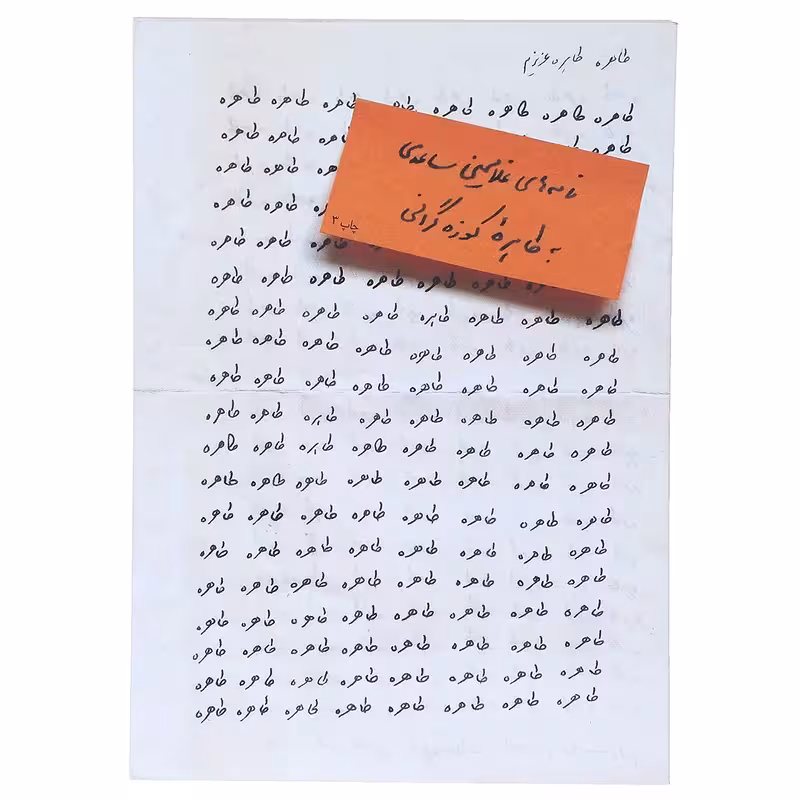 طاهره طاهره عزیزم
طاهره طاهره طاهره طاهره طاهره طاهره طاهره
طاهره طاهره
طاهره طاهره
طاهره طاهره
طاهره طاهره طاهره
طاهره طاهره طاهره طاهره طاهره طاهره
نامه‌های غلامحسین ساعدی
به طاهرهٔ کوزه‌گرانی
چاپ ۳
طاهره طاهره طاهره طاهره طاهره طاهره طاهره طاهره
طاهره طاهره طاهره طاهره طاهره طاهره طاهره طاهره
طاهره طاهره طاهره طاهره طاهره طاهره طاهره طاهره
طاهره طاهره طاهره طاهره طاهره طاهره طاهره طاهره
طاهره طاهره طاهره طاهره طاهره طاهره طاهره طاهره
طاهره طاهره طاهره طاهره طاهره طاهره طاهره طاهره
طاهره طاهره طاهره طاهره طاهره طاهره طاهره طاهره
طاهره طاهره طاهره طاهره طاهره طاهره طاهره طاهره
طاهره طاهره طاهره طاهره طاهره طاهره طاهره طاهره
طاهره طاهره طاهره طاهره طاهره طاهره طاهره طاهره
طاهره طاهره طاهره طاهره طاهره طاهره طاهره طاهره
طاهره طاهره طاهره طاهره طاهره طاهره طاهره طاهره
طاهره طاهره طاهره طاهره طاهره طاهره طاهره طاهره